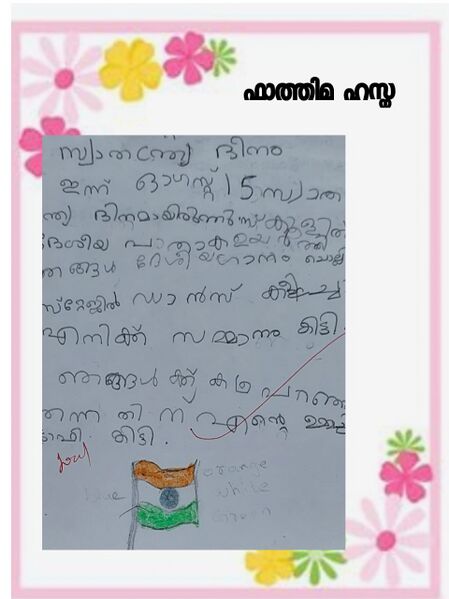 ഫാത്തിമ ഹസ്ന
സ്വാതന്ത്ര്യ ദിനം
ഇന്ന് ഓഗസ്റ്റ് 15 സ്വാത
ന്ത്ര്യ ദിനമായിരുന്നു സ്കൂളിൽ
ദേശീയ പാതാക ഉയർത്തി
ഞങ്ങൾ ദേശീയഗാനം ചൊല്ലി
സ്റ്റേജിൽ ഡാൻസ് കളിച്ചു
എനിക്ക് സമ്മാനം കിട്ടി.
ഞങ്ങൾക്ക് കഥ പറഞ്ഞു
തന്നതിന് എന്റെ
കിട്ടി.
orange
blue
white
Green